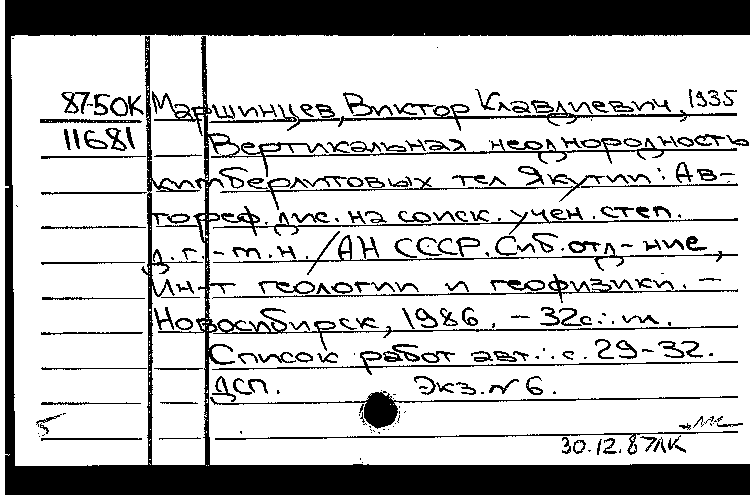 87-5ОК Маршинцев, Виктор Клавдиевич, 1935
11681 Вертикальная неоднородность
кимберлитовых тел Якутии: Ав-
тореф. дис. на соиск. учен. степ.
д.г.-м.н. / АН СССР. Сиб. отд-ние,
Ин-т геологии и геофизики. –
Новосибирск, 1986. – 32с.: ил.
Список работ авт.: с. 29-32.
ДСП. Экз. № 6.
30.12.87ЛК